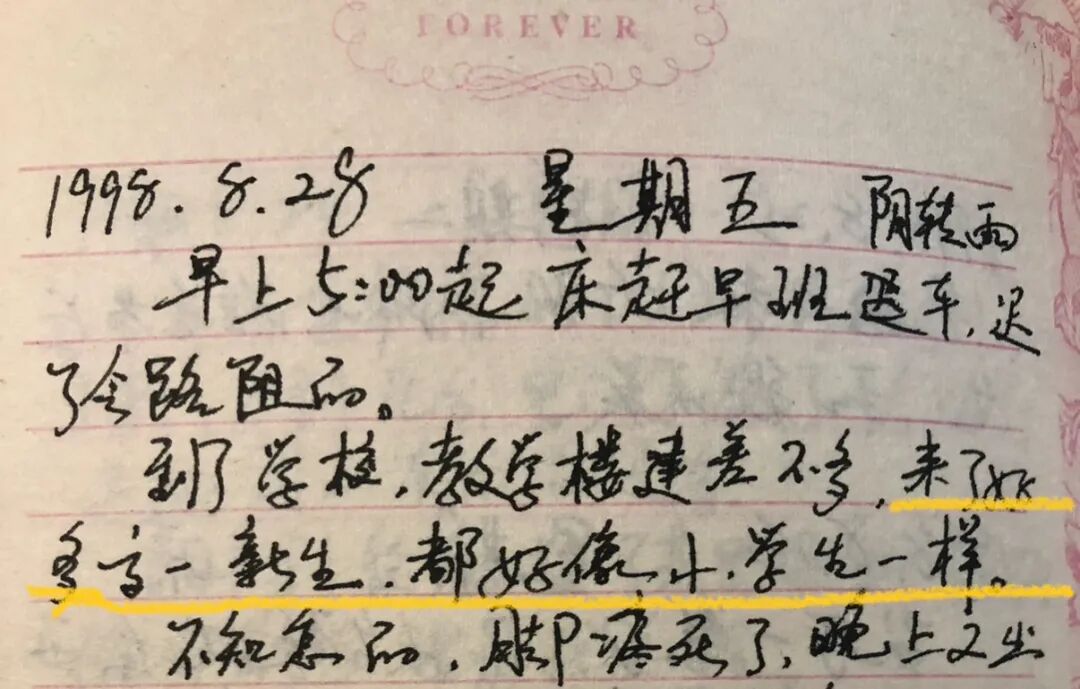 FOREVER
1998.8.28 星期五 阴转雨
早上5:00起床赶早班返车,迟
了会路阻的。
到了学校,教学楼建差不多,来了好
多高一新生,都好像小学生一样。
不知怎的,脚疼死了,晚上又出